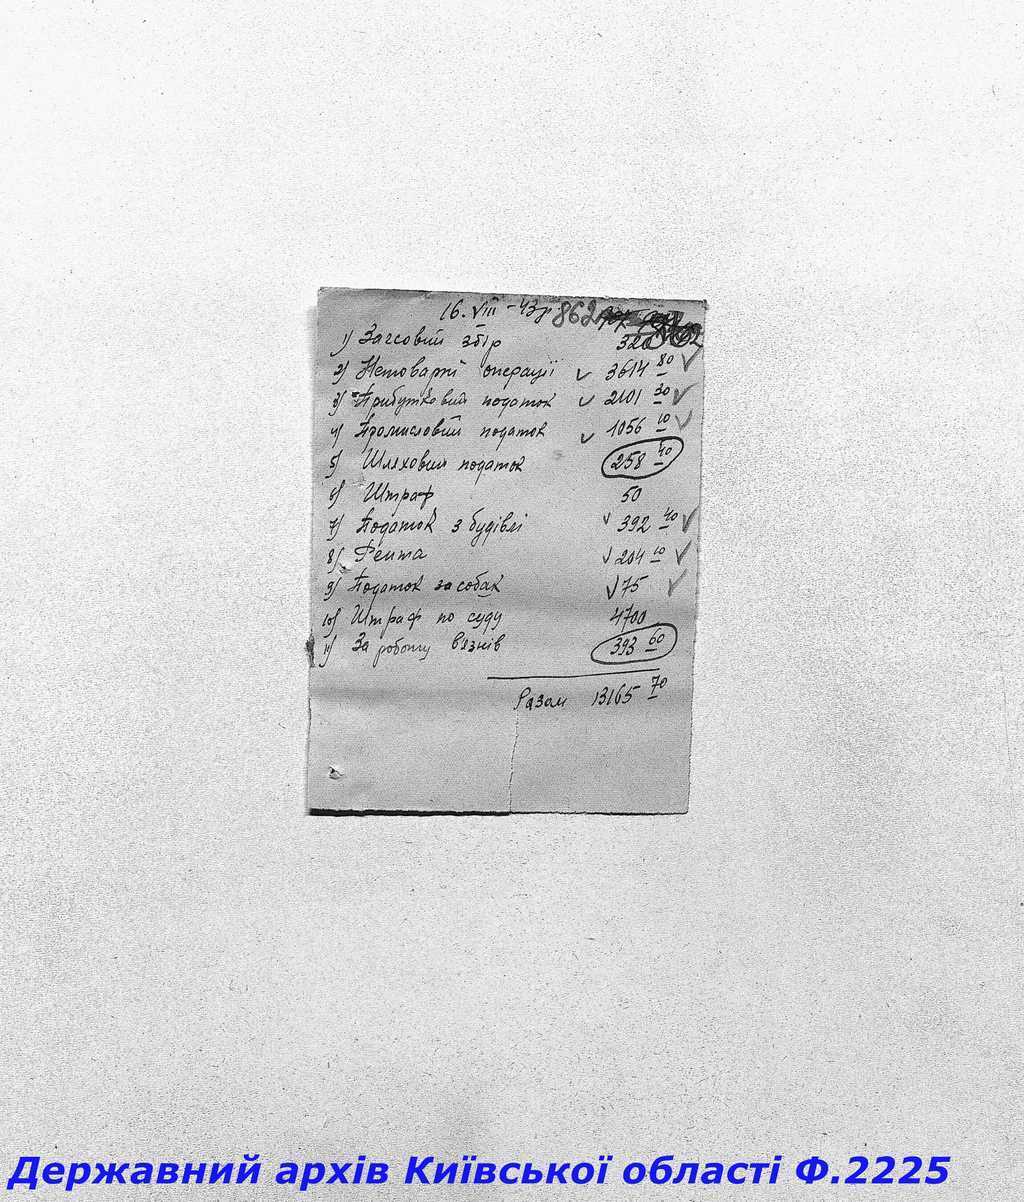 16.VIII – 43р 862
1) Загсовий збір 320
2) Нетоварні операції ✓ 3614 80 ✓
3) Прибутковий податок ✓ 2101 30 ✓
4) Промисловий податок ✓ 1056 10 ✓
5) Шляховий податок 258 40
6) Штраф 50
7) Податок з будівлі ✓ 392 40 ✓
8) Рента ✓ 204 10 ✓
9) Податок за собак ✓ 75 ✓
10) Штраф по суду 4700
11) За роботу вязнів 393 60
Разом 13165 70
Державний архів Київської області Ф.2225